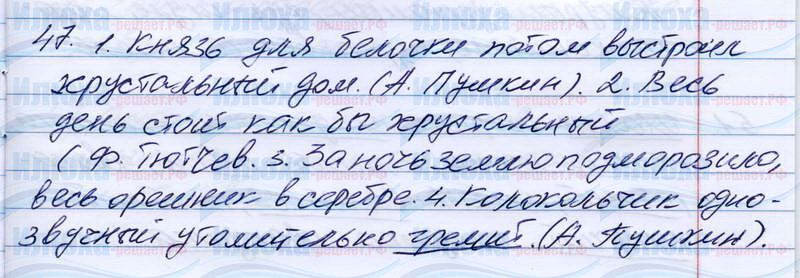 47. 1. Князь для белочки потом выстроил
хрустальный дом. (А. Пушкин). 2. Весь
день стоит как бы хрустальный
(Ф. Тютчев. 3. За ночь землю подморозило,
весь орешник в серебре. 4. Колокольчик одно-
звучный утомительно гремит. (А. Пушкин).